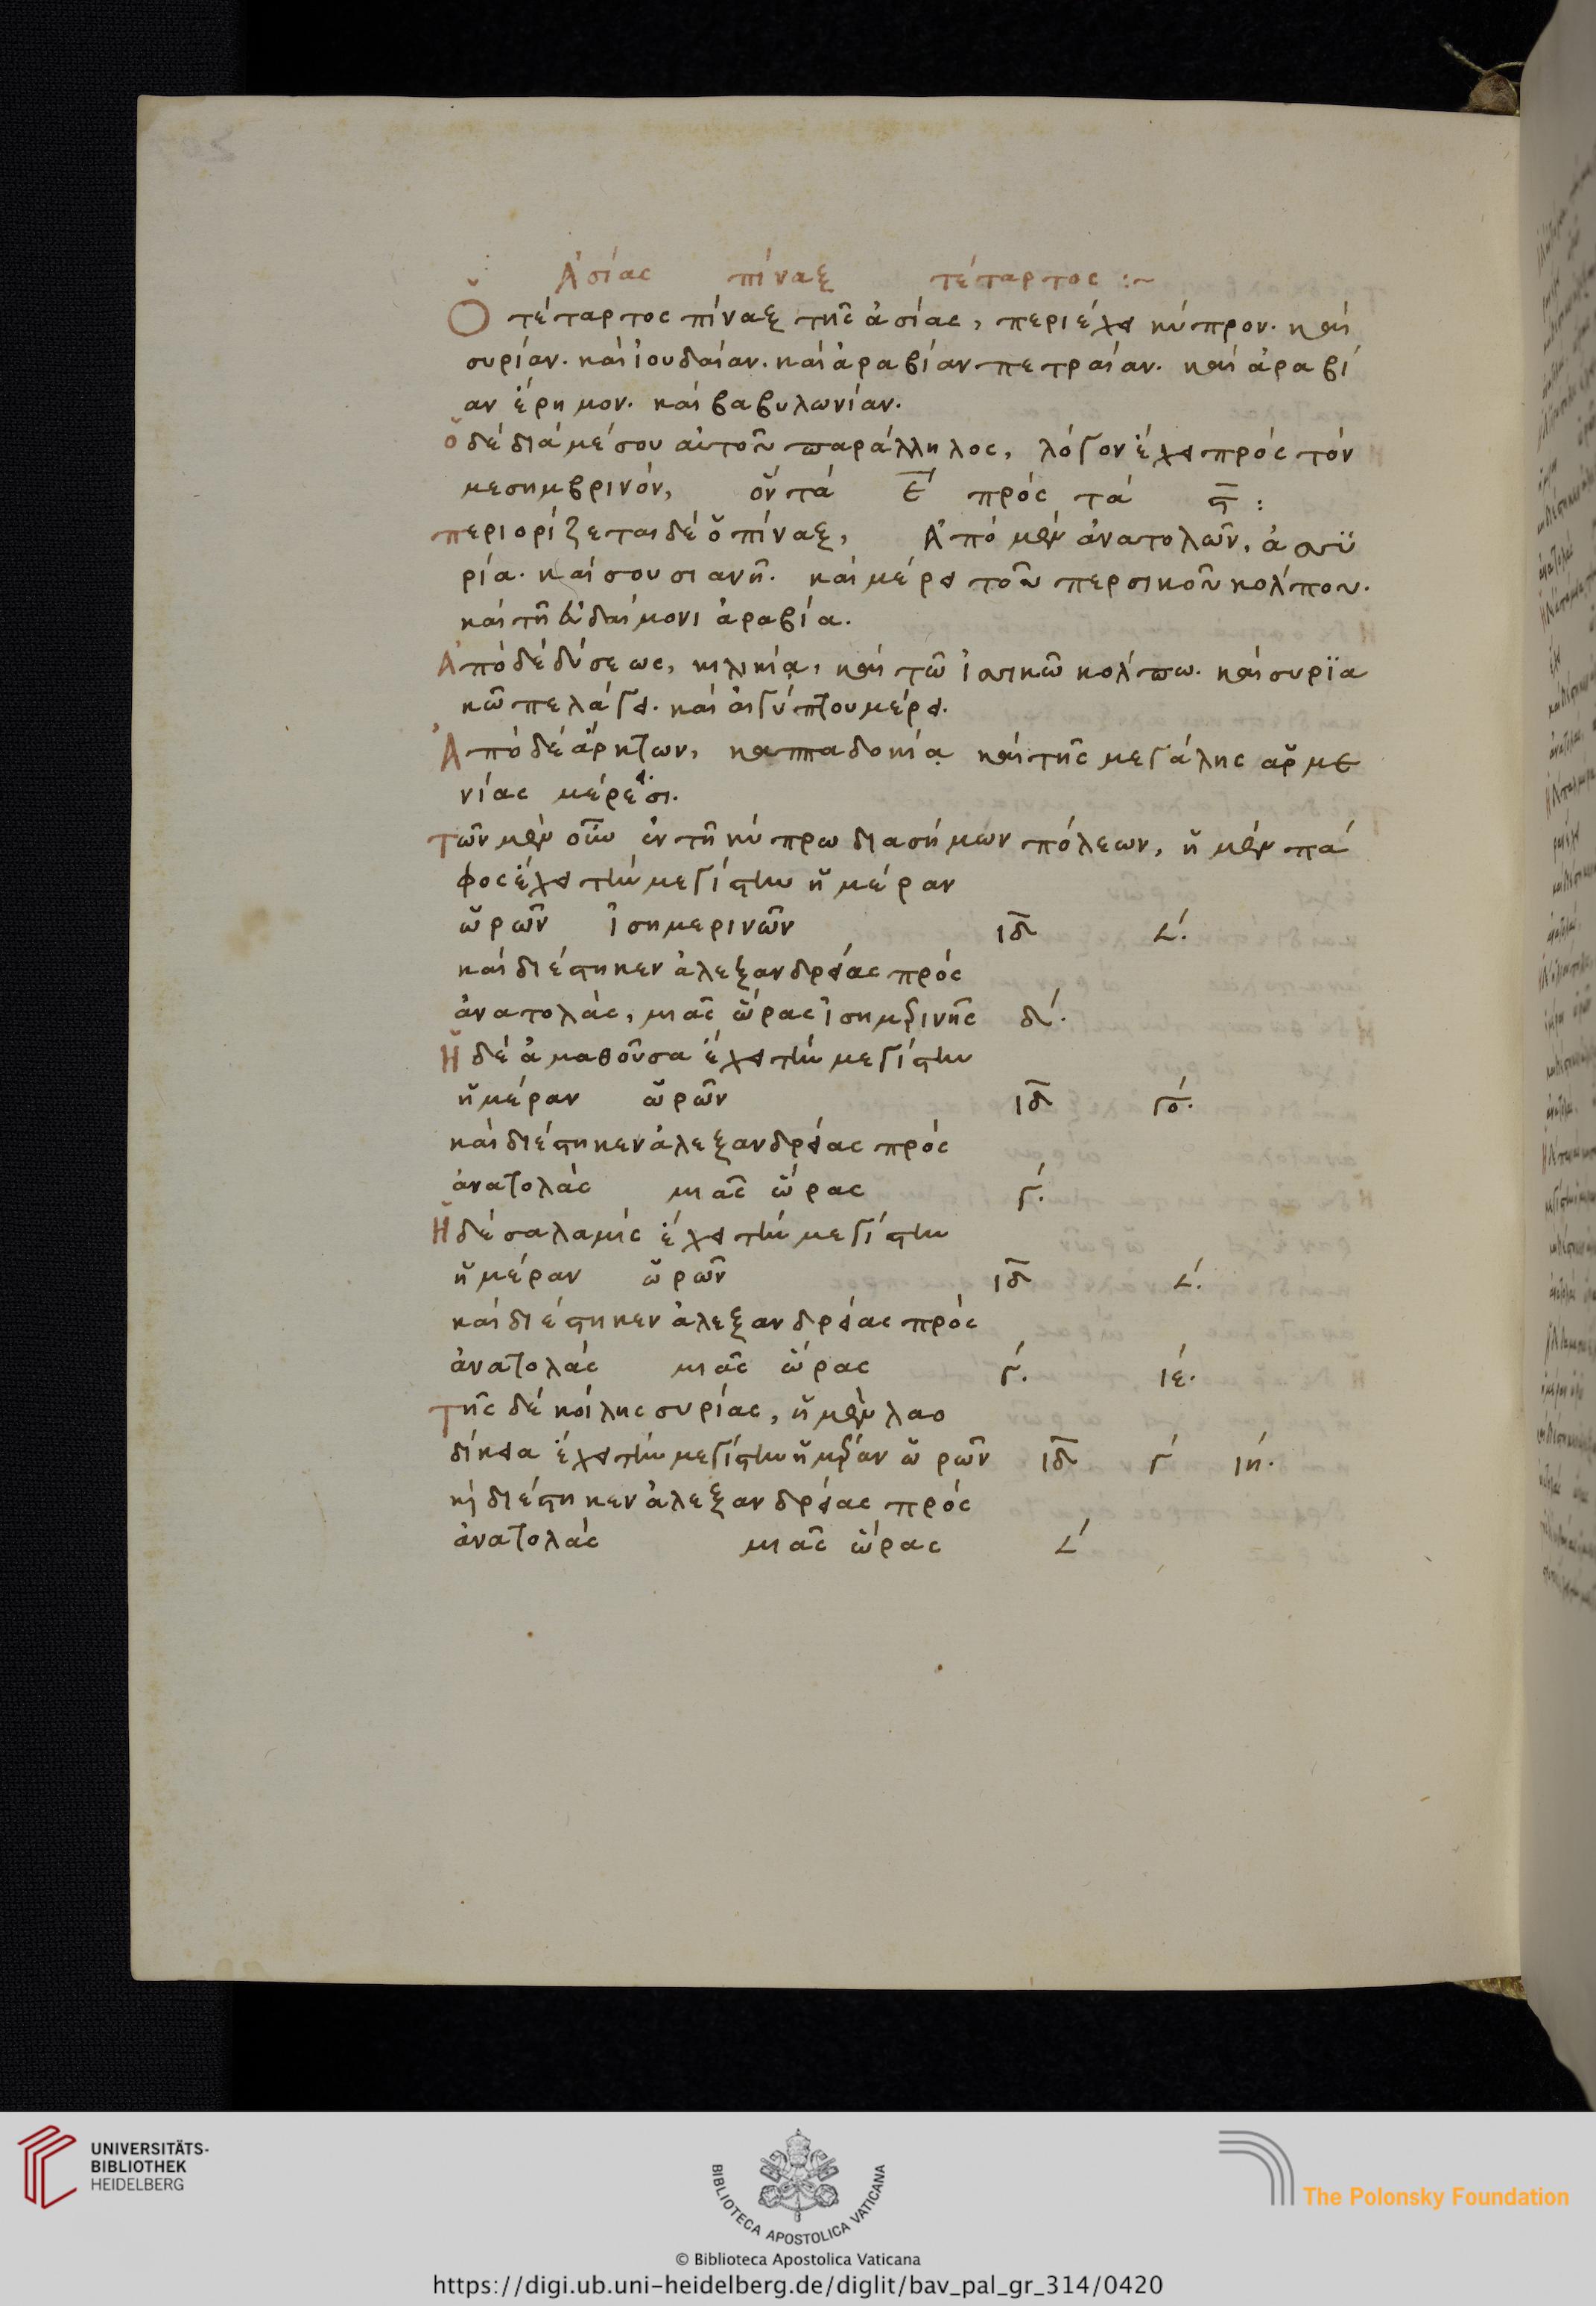 Ἀσίας πίναξ τέταρτος :~
Ὁ τέταρτος πίναξ τῆς ἀσίας, περιέχει κύπρον. καὶ
συρίαν. καὶ ἰουδαίαν. καὶ ἀραβίαν πετραίαν. καὶ ἀραβί
αν ἔρημον. καὶ βαβυλωνίαν.
ὁ δὲ διὰ μέσου αὐτοῦ παράλληλος, λόγον ἔχει πρὸς τὸν
μεσημβρινόν, ὃν τὰ ε̅ πρὸς τὰ ϛ̅ :
περιορίζεται δὲ ὁ πίναξ, Ἀπὸ μὲν ἀνατολῶν, ἀσσϋ
ρία. καὶ σουσιανῆ. καὶ μέρει τοῦ περσικοῦ κόλπου.
καὶ τῆ εὐδαίμονι ἀραβία.
Ἀπὸ δὲ δύσεως, κιλικία, καὶ τῶ ἰσσικῶ κόλπω. καὶ συρϊα
κῶ πελάγει. καὶ αἰγύπτου μέρει.
Ἀπὸ δὲ ἄρκτων, καππαδοκία καὶ τῆς μεγάλης ἀρμε
νίας μέρεσι.
τῶν μὲν οὖν ἐν τῆ κύπρω διασήμων πόλεων, ἡ μὲν πά
φος ἔχει τὴν μεγίστην ἡμέραν
ὡρῶν ἰσημερινῶν ιδ̅ 𐅵.
καὶ διέστηκεν ἀλεξανδρείας πρὸς
ἀνατολὰς, μιᾶς ὥρας ἰσημερινῆς δ´.
Ἡ δὲ ἀμαθοῦσα ἔχει τὴν μεγίστην
ἡμέραν ὡρῶν ιδ̅ γό.
καὶ διέστηκεν ἀλεξανδρείας πρὸς
ἀνατολὰς μιᾶς ὥρας γ´.
Ἡ δὲ σαλαμὶς ἔχει τὴν μεγίστην
ἡμέραν ὡρῶν ιδ̅ 𐅵.
καὶ διέστηκεν ἀλεξανδρείας πρὸς
ἀνατολὰς μιᾶς ὥρας γ´. ιέ.
τῆς δὲ κοίλης συρίας, ἡ μὲν λαο
δίκεια ἔχει τὴν μεγίστην ἡμέραν ὡρῶν ιδ̅ γ´ ιή.
κὶ διέστηκεν ἀλεξανδρείας πρὸς
ἀνατολὰς μιᾶς ὥρας 𐅵
UNIVERSITÄTS-
BIBLIOTHEK
HEIDELBERG
BIBLIOTECA APOSTOLICA VATICANA
© Biblioteca Apostolica Vaticana
The Polonsky Foundation
https://digi.ub.uni-heidelberg.de/diglit/bav_pal_gr_314/0420